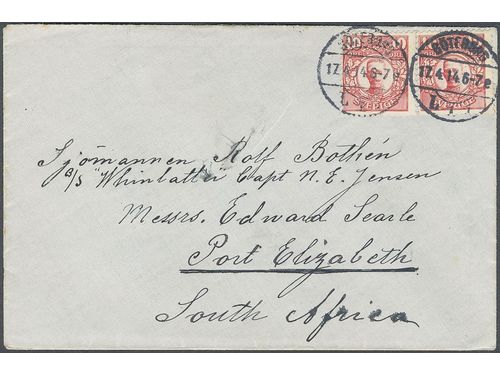 10 10
GÖTEBORG
17.4.14.6-7e 17.4.14.6-7e
SVERIGE SVERIGE
Sjömannen Rolf Bothén
B/S "Whinlatter" Capt N. E. Jensen
Messrs. Edward Searle
Port Elizabeth
South Africa